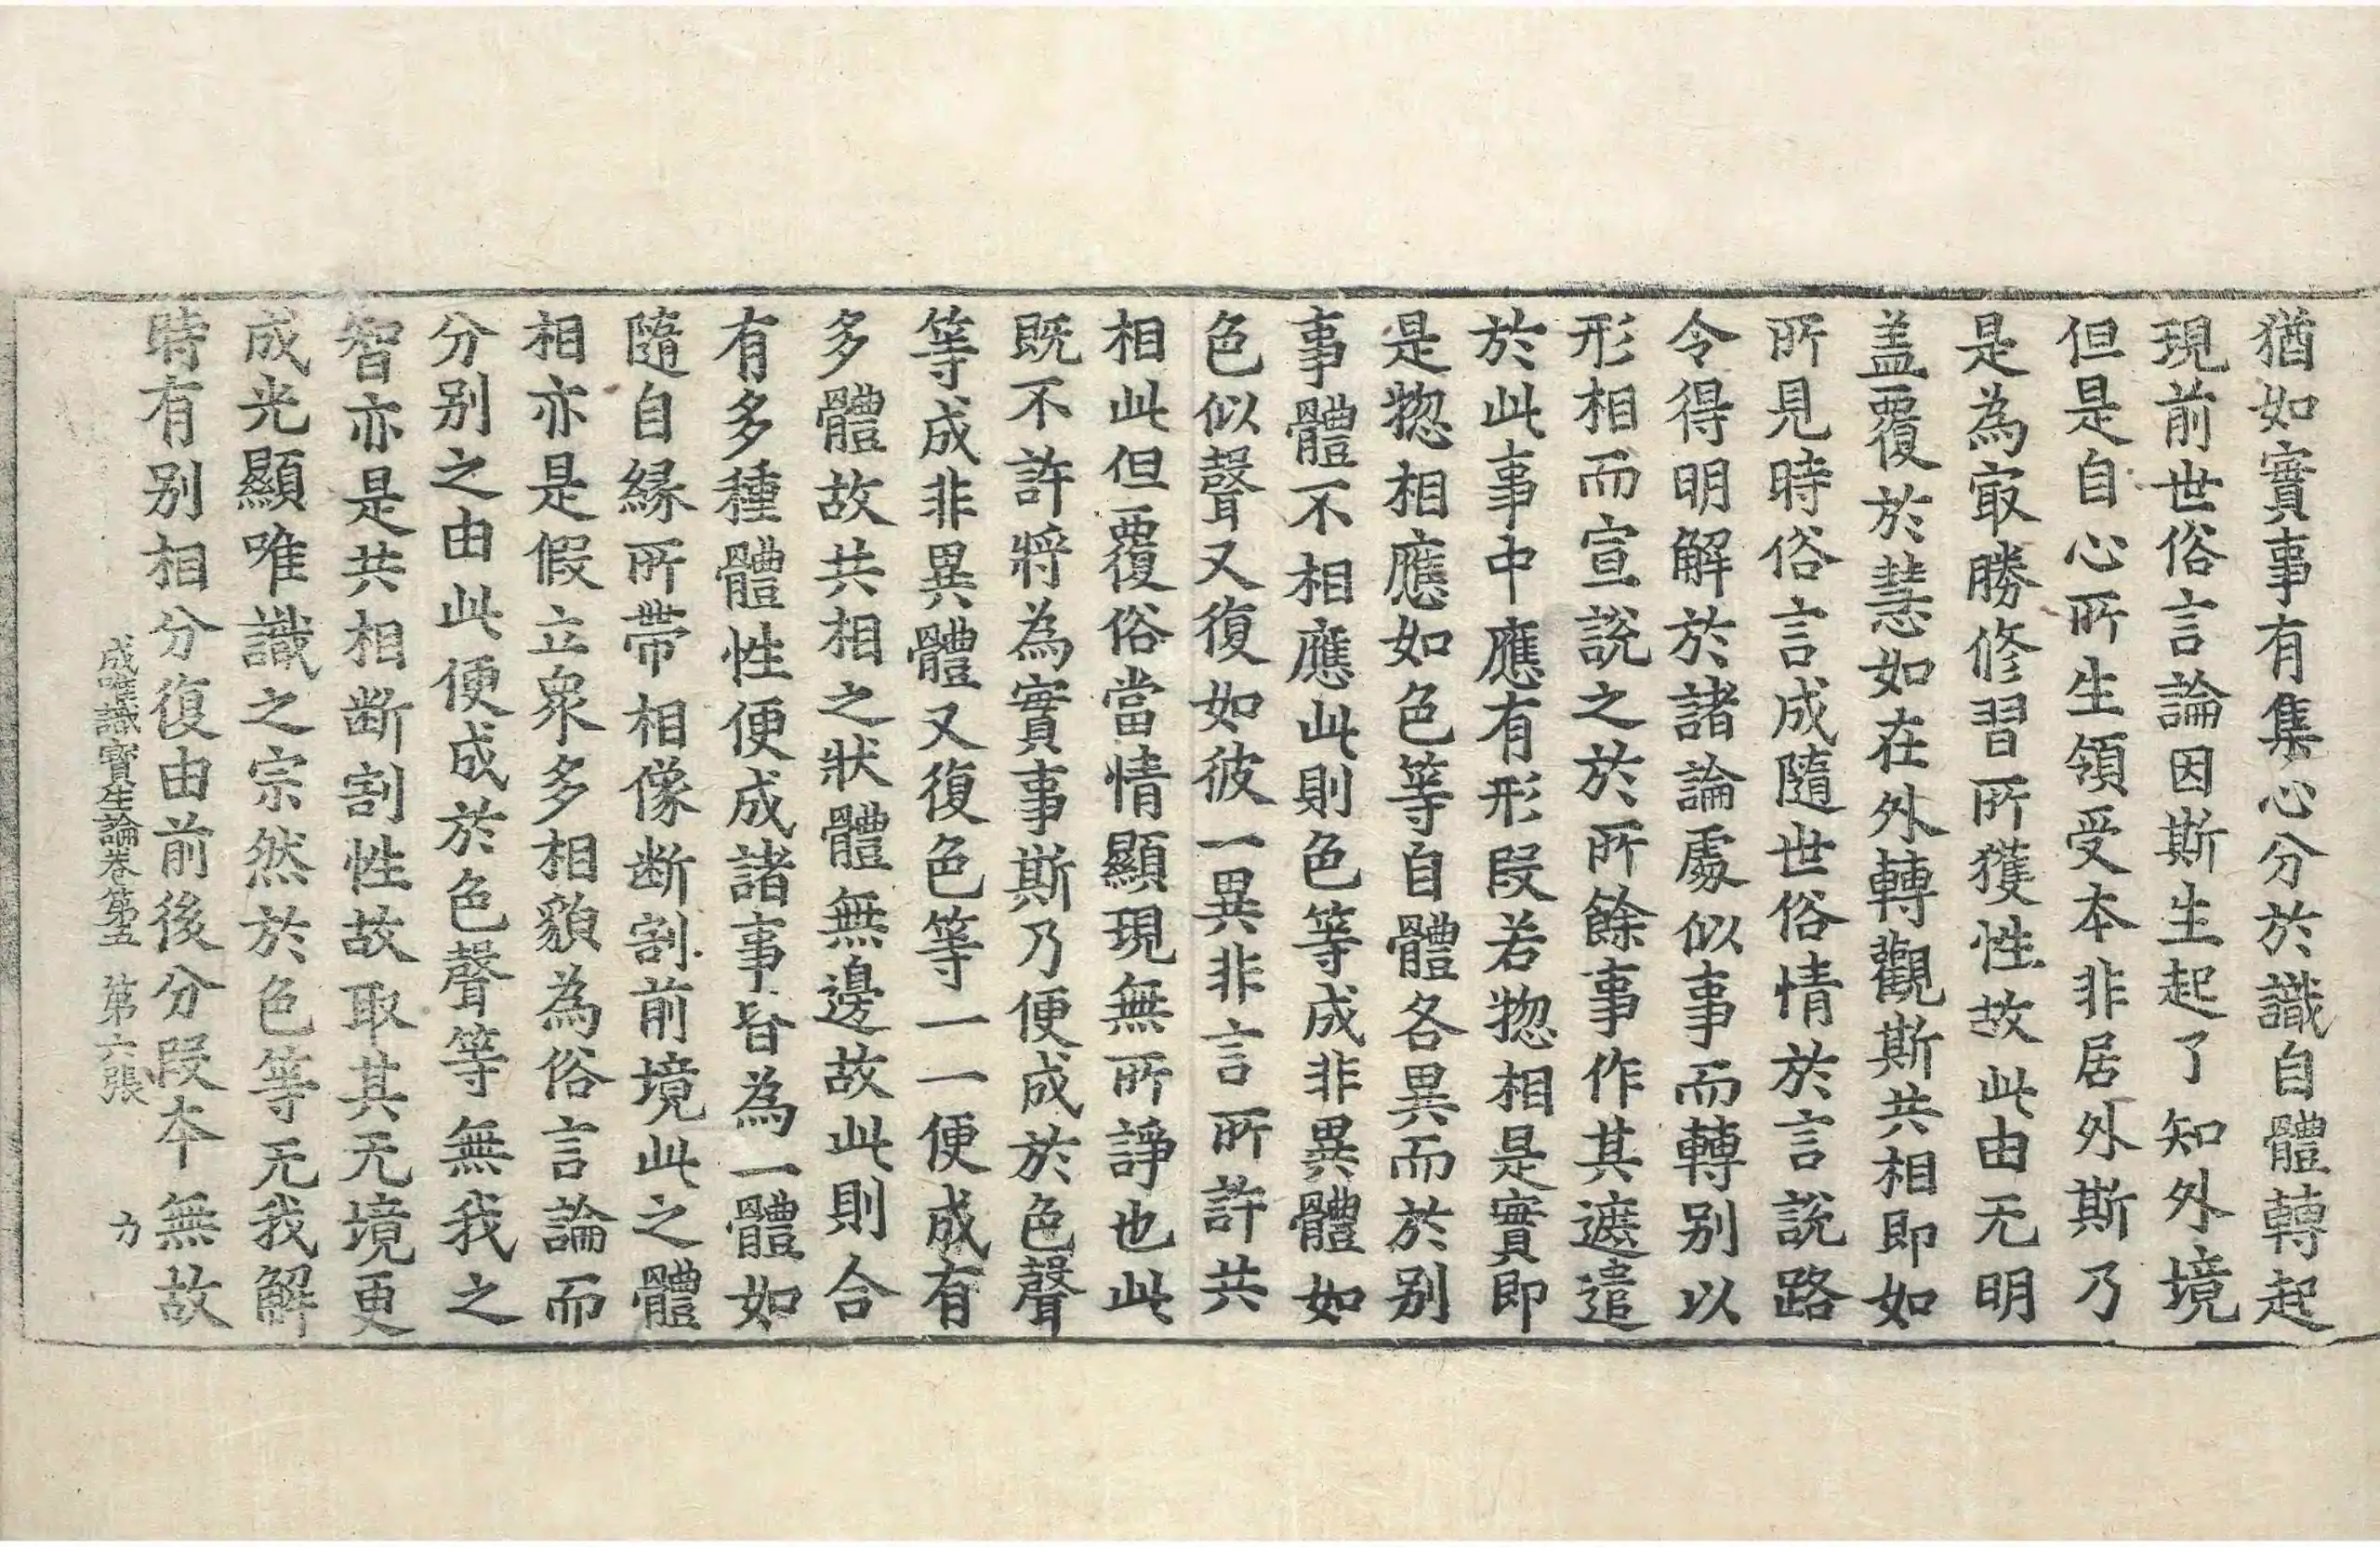 猶如實事有集心分於識自體轉起
現前世俗言論因斯生起了知外境
但是自心所生領受本非居外斯乃
是為㝡勝修習所獲性故此由无明
盖覆於慧如在外轉觀斯共相即如
所見時俗言成隨世俗情於言說路
令得明解於諸論處似事而轉別以
形相而宣說之於所餘事作其遮遣
於此事中應有形段若惣相是實即
是惣相應如色等自體各異而於別
事體不相應此則色等成非異體如
色似聲又復如彼一異非言所許共
相此但覆俗當情顯現無所諍也此
既不許將為實事斯乃便成於色聲
等成非異體又復色等一一便成有
多體故共相之狀體無邊故此則合
有多種體性便成諸事皆為一體如
隨自緣所帶相像断割前境此之體
相亦是假立衆多相貌為俗言論而
分別之由此便成於色聲等無我之
智亦是共相断割性故取其无境更
成光顯唯識之宗然於色等无我解
時有別相分復由前後分段本無故
成唯識寶生論卷第五 第六張 力